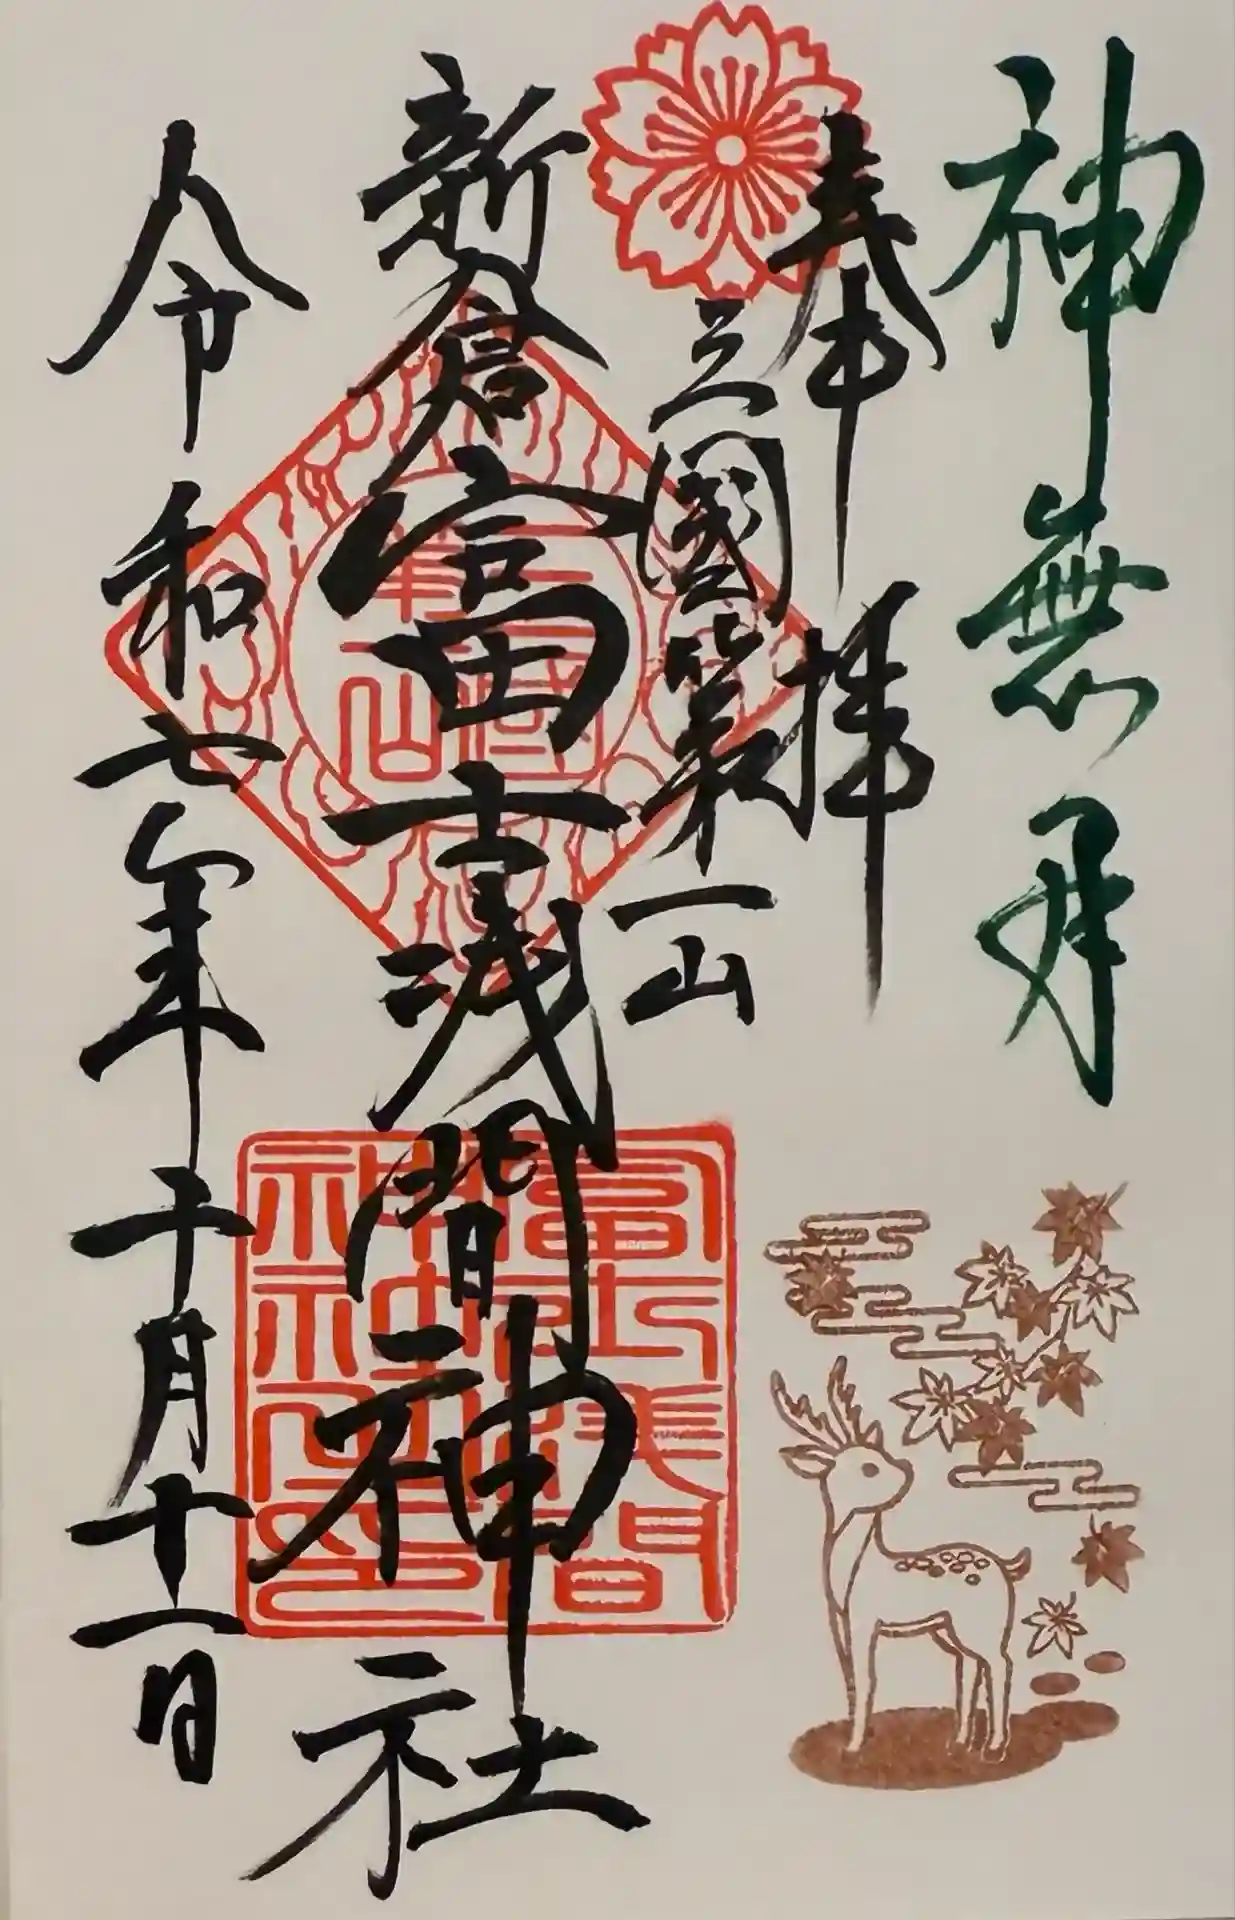 神無月
奉拝
三國第一山
新倉富士浅間神社
令和七年十月十一日
三國
第一山
富士浅間
神社